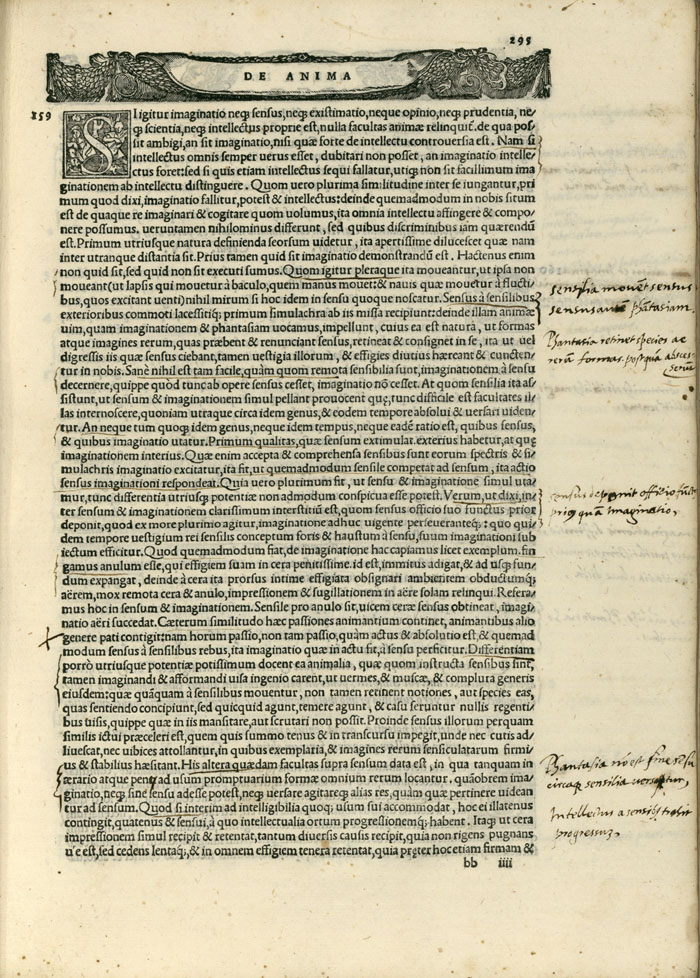 295
DE ANIMA
159
SI igitur imaginatio neq; sensus, neq; existimatio, neque opinio, neq; prudentia, ne/
q; scientia, neq; intellectus proprie est, nulla facultas animæ relinquit̃. de qua pos/
sit ambigi, an sit imaginatio, nisi quæ forte de intellectu controuersia est. Nam si
intellectus omnis semper uerus esset, dubitari non posset, an imaginatio intelle/
ctus foret: sed si quis etiam intellectus sequi fallatur, utiq; non sit facillimum ima
ginationem ab intellectu distinguere. Quom uero plurima similitudine inter se iungantur, pri
mum quod dixi, imaginatio fallitur, potest & intellectus: deinde quemadmodum in nobis situm
est de quaque re imaginari & cogitare quom uolumus, ita omnia intellectu affingere & compo/
nere possumus. ueruntamen nihilominus differunt, sed quibus discriminibus iam quærendũ
est. Primum utriusque natura definienda seorsum uidetur, ita apertissime dilucescet quæ nam
inter utranque distantia sit. Prius tamen quid sit imaginatio demonstrandũ est. Hactenus enim
non quid sit, sed quid non sit executi sumus. Quom igitur pleraque ita moueantur, ut ipsa non
moueant (ut lapsis qui mouetur à baculo, quem manus mouet: & nauis quæ mouetur à flucti/
bus, quos excitant uenti) nihil mirum si hoc idem in sensu quoque noscatur. Sensus à sensilibus
exterioribus commoti lacessitiq; primum simulachra ab iis missa recipiunt: deinde illam animæ
uim, quam imaginationem & phantasiam uocamus, impellunt, cuius ea est natura, ut formas
atque imagines rerum, quas præbent & renunciant sensus, retineat & consignet in se, ita ut uel
digressis iis quæ sensus ciebant, tamen uestigia illorum, & effigies diutius hæreant & cuncten/
tur in nobis. Sanè nihil est tam facile, quàm quom remota sensibilia sunt, imaginationem à sensu
decernere, quippe quòd tunc ab opere sensus cesset, imaginatio nõ cesset. At quom sensilia ita as/
sistunt, ut sensum & imaginationem simul pellant prouocent que, tunc difficile est facultates il/
las internoscere, quoniam utraque circa idem genus, & eodem tempore absolui & uersari uiden/
tur. An neque tum quoq; idem genus, neque idem tempus, neque eadẽ ratio est, quibus sensus,
& quibus imaginatio utatur. Primum qualitas, quæ sensum extimulat. exterius habetur, at que
imaginationem interius. Quæ enim accepta & comprehensa sensibus sunt eorum spectris & si/
mulachris imaginatio excitatur, ita fit, ut quemadmodum sensile competat ad sensum, ita actio
sensus imaginationi respondeat. Quia uero plurimum fit, ut sensu & imaginatione simul uta/
mur, tunc differentia utriusq; potentiæ non admodum conspicua esse potest. Verum, ut dixi, in/
ter sensum & imaginationem clarissimum interstitiũ est, quom sensus officio suo functus prior
deponit, quod ex more plurimo agitur, imaginatione adhuc uigente perseueranteq;: quo qui/
dem tempore uestigium rei sensilis conceptum foris & haustum à sensu, suum imaginationi sub
iectum efficitur. Quod quemadmodum fiat, de imaginatione hac capiamus licet exemplum. fin
gamus anulum esse, qui effigiem suam in cera penitissime. id est, immitus adigat, & ad usq; fun/
dum expangat, deinde à cera ita prorsus intime effigiata obsignari ambientem obductumq;
aërem, mox remota cera & anulo, impressionem & sugillationem in aëre solam relinqui. Refera/
mus hoc in sensum & imaginationem. Sensile pro anulo sit, uicem ceræ sensus obtineat, imagi/
natio aëri succedat. Cæterum similitudo hæc passiones animantium continet, animantibus alio
genere pati contigit: nam horum passio, non tam passio, quàm actus & absolutio est, & quemad
modum sensus à sensilibus rebus, ita imaginatio quæ in actu fit, à sensu perficitur. Differentiam
porrò utriusque potentiæ potissimum docent ea animalia, quæ quom instructa sensibus sint,
tamen imaginandi & afformandi uisa ingenio carent, ut uermes, & muscæ, & complura generis
eiusdem: quæ quãquam à sensilibus mouentur, non tamen retinent notiones, aut species eas,
quas sentiendo concipiunt, sed quicquid agunt, temere agunt, & casu feruntur nullis regenti/
bus uisis, quippe quæ in iis mansitare, aut scrutari non possit. Proinde sensus illorum perquam
similis ictui præceleri est, quem quis summo tenus & in transcursu impegit, unde nec cutis ad/
liuescat, nec uibices attollantur, in quibus exemplaria, & imagines rerum sensiculatarum firmi/
us & stabilius hæsitant. His altera quædam facultas supra sensum data est, in qua tanquam in
ærario atque penu ad usum promptuarium formæ omnium rerum locantur. quãobrem ima/
ginatio, neq; sine sensu adesse potest, neq; uersare agitareq; alias res, quàm quæ pertinere uidean
tur ad sensum. Quod si interim ad intelligibilia quoq; usum sui accommodat, hoc ei illatenus
contingit, quatenus & sensui, à quo intellectualia ortum progressionemq; habent. Itaq; ut cera
impressionem simul recipit & retentat, tantum diuersis causis recipit, quia non rigens pugnans
ue est, sed cedens lentaq;, & in omnem effigiem tenera retentat, quia præter hoc etiam firmam &
bb iiii
sensilia mouẽt sensus
sensus autẽ phãtasiam.
Phantasia retinet species ac
rerũ formas. postquã absces
serint
sensus deponit officio suo functus
prior quam Imaginatio.
Phantasia nõ est sine sẽsu
circaq; sensilia uersatur.
Intellectus a sensibus trahit
progressus.